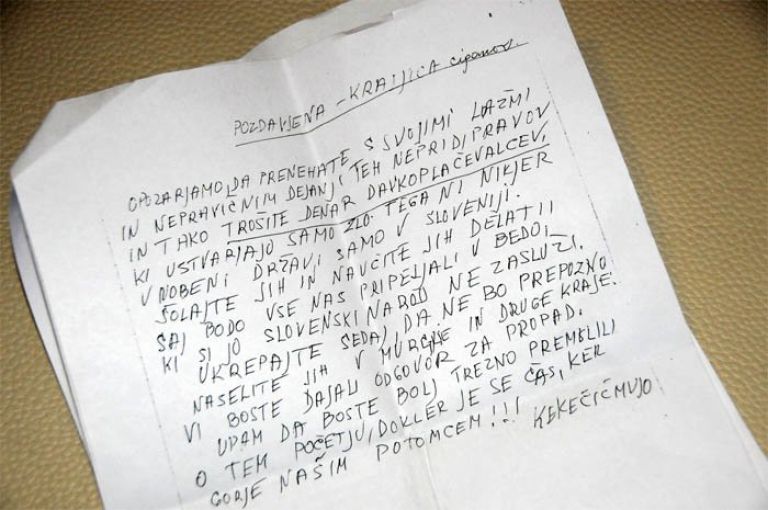 POZDAVJENA - KRALJICA ciganov.
OPOZARJAMO, DA PRENEHATE S SVOJIMI LAŽMI
IN NEPRAVIČNIM DEJANJI, TEH NEPRIDIPRAVOV
IN TAKO TROŠITE DENAR DAVKOPLAČEVALCEV,
KI USTVARJAJO SAMO ZLO. TEGA NI NIKJER
V NOBENI DRŽAVI SAMO V SLOVENIJI.
ŠOLAJTE JIH IN NAUČITE JIH DELATI!
SAJ BODO VSE NAS PRIPELJALI V BEDO,
KI SI JO SLOVENSKI NAROD NE ZASLUŽI.
UKREPAJTE SEDAJ, DA NE BO PREPOZNO
NASELITE JIH V MURGLE IN DRUGE KRAJE.
VI BOSTE DAJALI ODGOVOR ZA PROPAD.
UPAM DA BOSTE BOLJ TREZNO PREMISLILI
O TEM POČETJU, DOKLER JE SE ČAS, KER
GORJE NAŠIM POTOMCEM!!! KEKEČIČMUJO